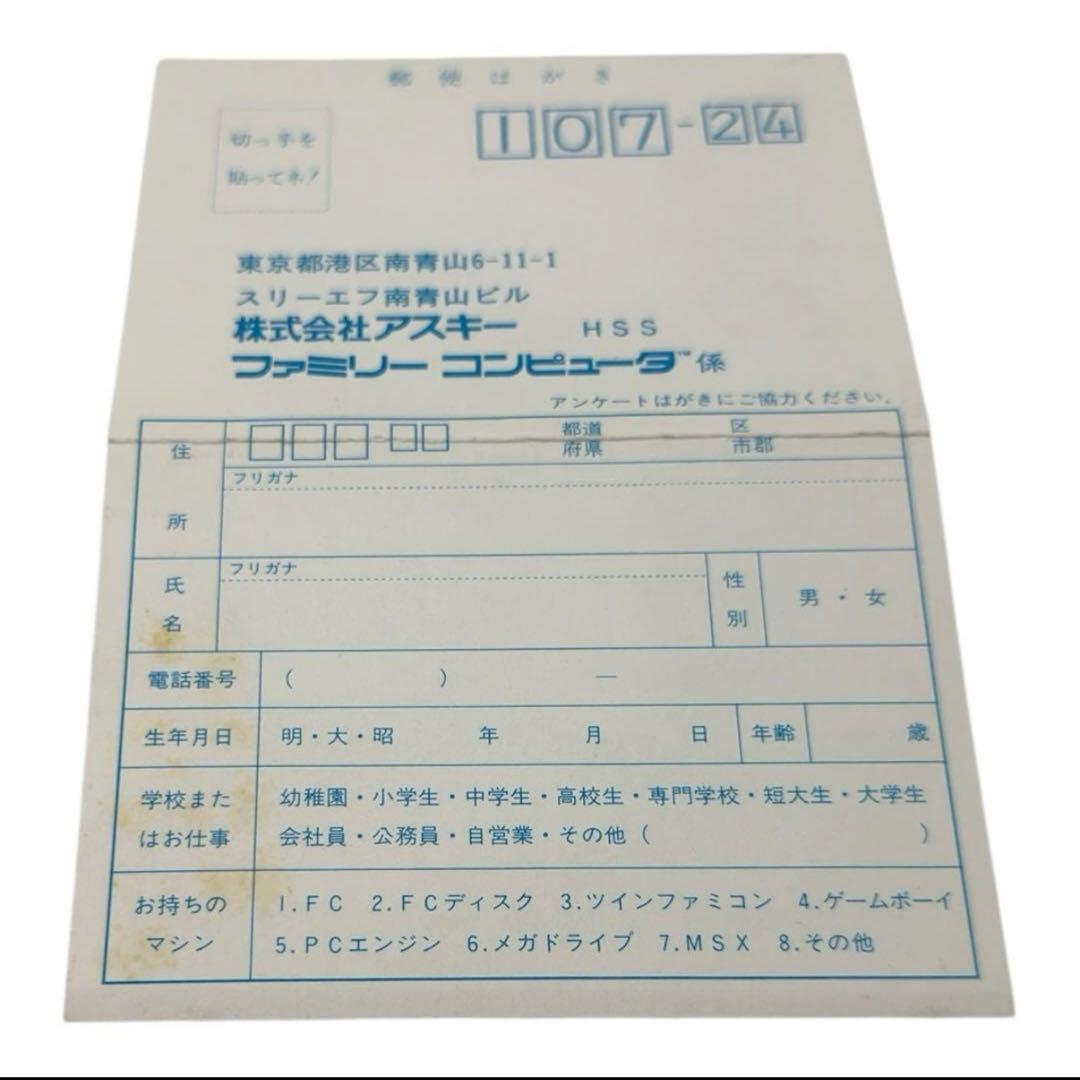 郵便はがき
切っ手を
貼ってネ!
107-24
東京都港区南青山6-11-1
スリーエフ南青山ビル
株式会社アスキー HSS
ファミリー コンピュータ™係
アンケートはがきにご協力ください。
住所
都道府県
区市郡
フリガナ
氏名
フリガナ
性別
男・女
電話番号 ( ) —
生年月日 明・大・昭 年 月 日 年齢 歳
学校また
はお仕事
幼稚園・小学生・中学生・高校生・専門学校・短大生・大学生
会社員・公務員・自営業・その他( )
お持ちの
マシン
1.FC 2.FCディスク 3.ツインファミコン 4.ゲームボーイ
5.PCエンジン 6.メガドライブ 7.MSX 8.その他